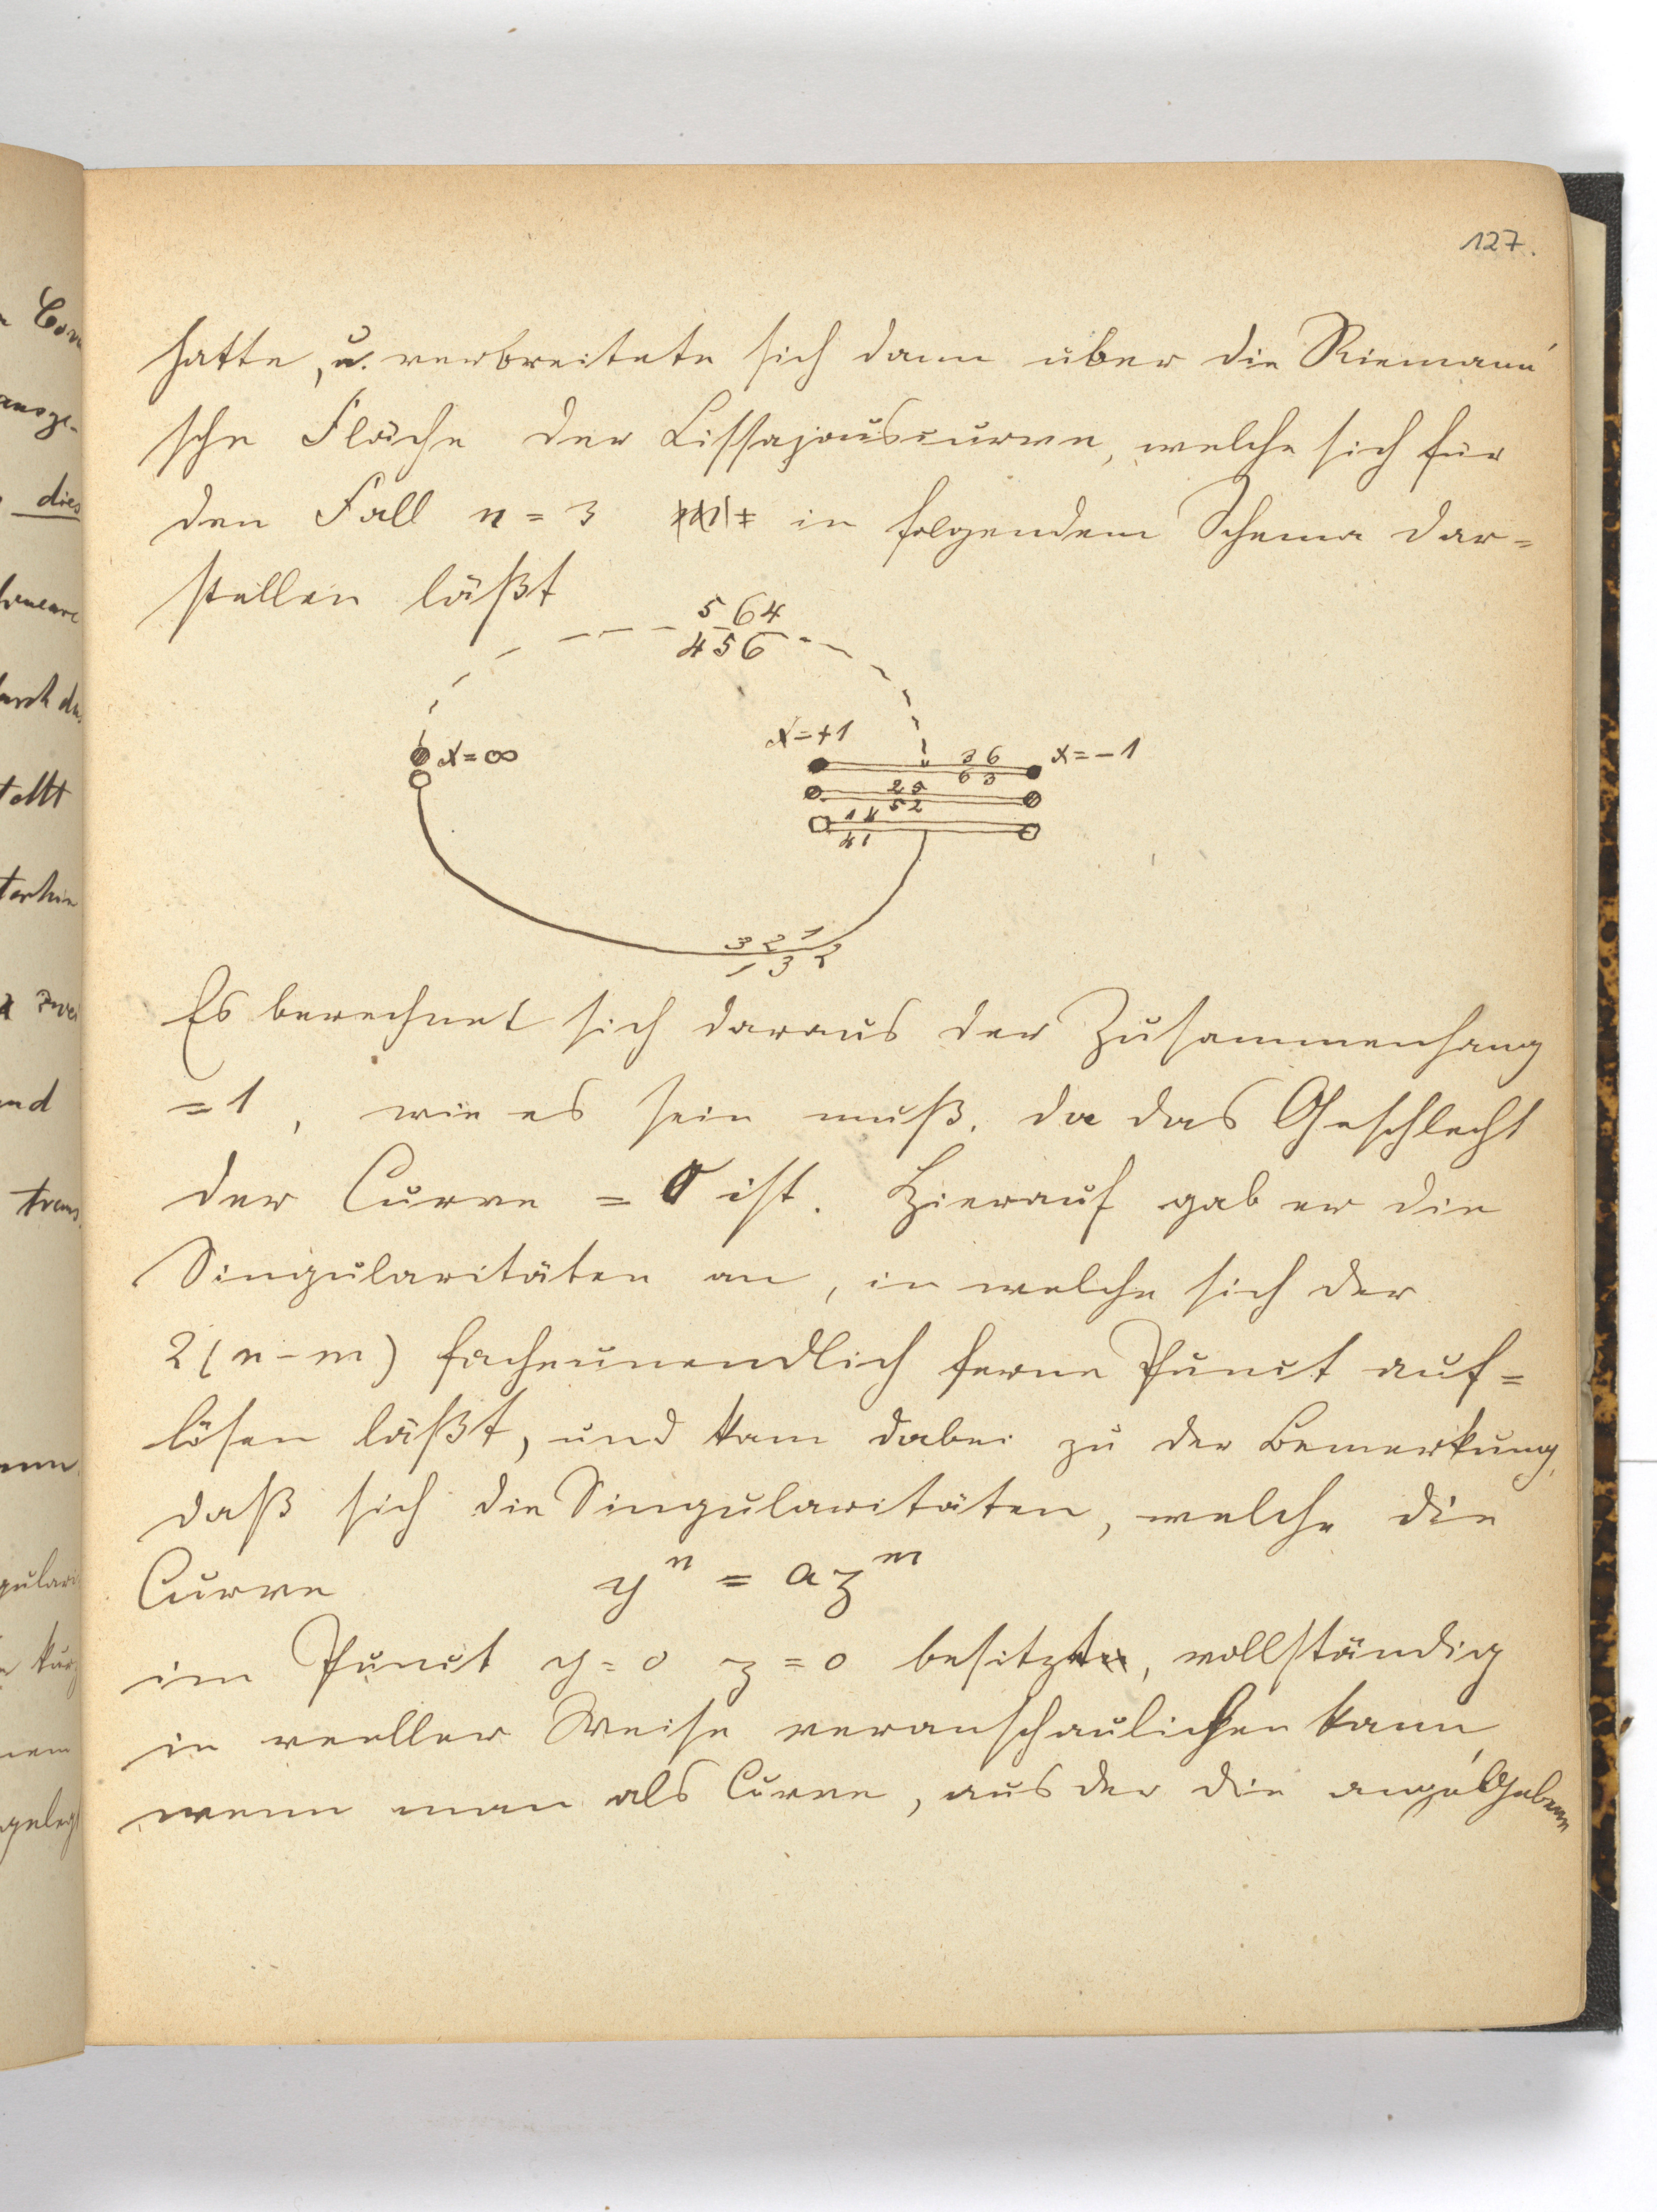 127.
hatte, u. verbreitete sich dann über die Riemann'
sche Fläche der Lissajouscurve, welche sich für
den Fall n = 3 in folgendem Schema dar=
stellen läßt
5 6 4
4 5 6
x = ∞
x = +1
x = -1
3 6
6 3
2 5
5 2
1 4
4 1
3 2 1
1 3 2
Es berechnet sich daraus der Zusammenhang
= 1, wie es sein muß, da das Geschlecht
der Curve = 0 ist. Hierauf gab er die
Singularitäten an, in welche sich der
2(n-m) facheunendlich ferne Punct auf=
lösen läßt, und kam dabei zu der Bemerkung,
daß sich die Singularitäten, welche die
Curve yⁿ = azᵐ
im Punct y = 0 z = 0 besitzt, vollständig
in reeller Weise veranschaulichen kann
wenn man als Curve, aus der die
Com
ausge-
dies
durch da
stellt
terhin
zwei
und
trans
kurz
gelegt